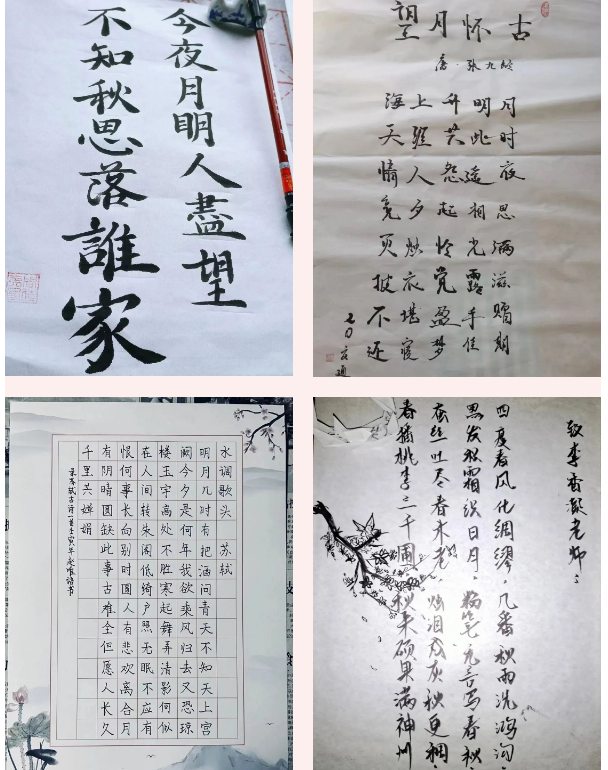 今夜月明人盡望
不知秋思落誰家
望月怀古
唐·张九龄
海上升明月
天涯共此时
情人怨遥夜
竟夕起相思
灭烛怜光满
披衣觉露滋
不堪盈手赠
还寝梦佳期
水调歌头 苏轼
明月几时有把酒问青天不知天上宫
阙今夕是何年我欲乘风归去又恐琼
楼玉宇高处不胜寒起舞弄清影何似
在人间转朱阁低绮户照无眠不应有
恨何事长向别时圆人有悲欢离合月
有阴晴圆缺此事古难全但愿人长久
千里共婵娟
录苏轼古诗一首壬寅年
致李香凝老师:
四度春风化绸缪,几番秋雨洗鸿沟
黑发积霜织日月,粉笔无言写春秋
蚕丝吐尽春未老,烛泪成灰秋更稠
春播桃李三千圃,秋来硕果满神州